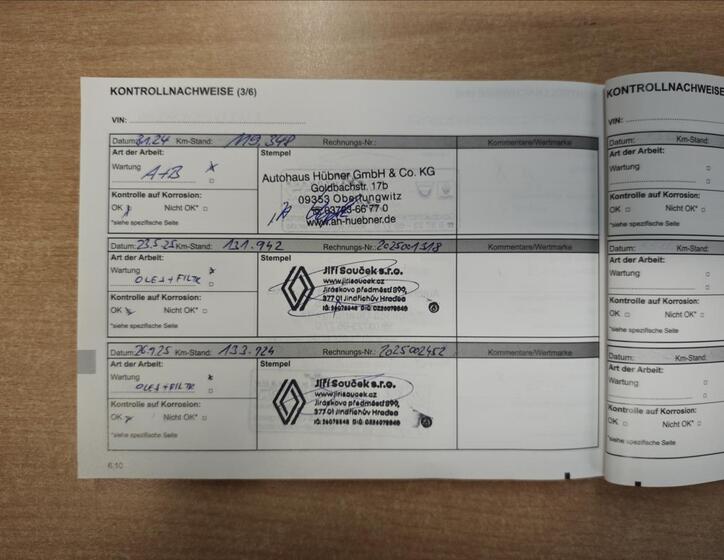 KONTROLLNACHWEISE (3/6)
VIN:
Datum: 3.1.24 Km-Stand: 119.348 Rechnungs-Nr.: Kommentare/Wertmarke
Art der Arbeit: Stempel
Wartung A+B
Kontrolle auf Korrosion:
OK Nicht OK*
*siehe spezifische Seite
Autohaus Hübner GmbH & Co. KG
Goldbachstr. 17b
09353 Oberlungwitz
66 77 0
www.ah-huebner.de
Datum: 23.5.25 Km-Stand: 131.942 Rechnungs-Nr.: 2025001318 Kommentare/Wertmarke
Art der Arbeit: Stempel
Wartung
OLEJ + FILTR
Kontrolle auf Korrosion:
OK Nicht OK*
*siehe spezifische Seite
Jiří Souček s.r.o.
www.jirisoucek.cz
Jiráskovo předměstí 890,
377 01 Jindřichův Hradec
Datum: 26.9.25 Km-Stand: 133.924 Rechnungs-Nr.: 2025002452 Kommentare/Wertmarke
Art der Arbeit: Stempel
Wartung
OLEJ + FILTR
Kontrolle auf Korrosion:
OK Nicht OK*
*siehe spezifische Seite
Jiří Souček s.r.o.
www.jirisoucek.cz
Jiráskovo předměstí 890,
377 01 Jindřichův Hradec
6.10
KONTROLLNACHWEISE
VIN:
Datum: Km-Stand:
Art der Arbeit:
Wartung
Kontrolle auf Korrosion:
OK Nicht OK*
*siehe spezifische Seite
Datum: Km-Stand:
Art der Arbeit:
Wartung
Kontrolle auf Korrosion:
OK Nicht OK*
*siehe spezifische Seite
Datum: Km-Stand:
Art der Arbeit:
Wartung
Kontrolle auf Korrosion:
OK Nicht OK*
*siehe spezifische Seite